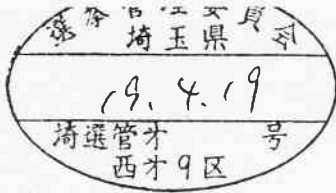 選挙管理委員会
埼玉県
19.4.19
埼選管才 号
西才9区